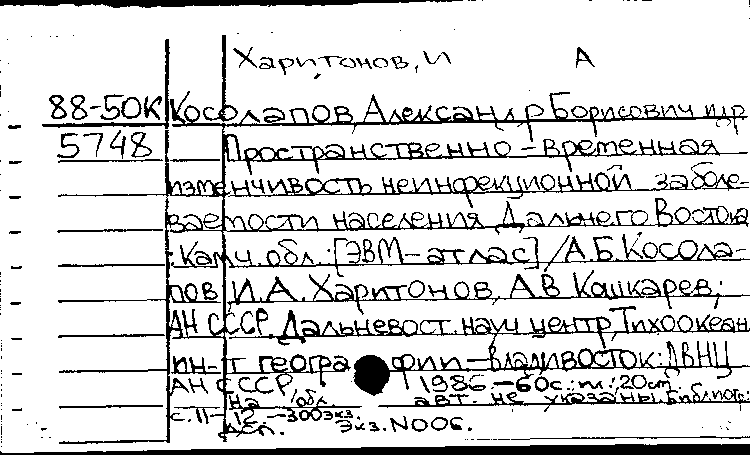 Харитонов, И А
88-50К Косолапов, Александр Борисович и др
5748 Пространственно-временная
изменчивость неинфекционной заболе-
ваемости населения Дальнего Востока
: Камч. обл.: [ЭВМ-атлас] / А.Б. Косола-
пов, И.А. Харитонов, А В Кашкарев;
АН СССР. Дальневост. науч центр, Тихоокеан
ин-т географии.-Владивосток: ДВНЦ
АН СССР, 1986.-60с.: ил.; 20см.
На обл. авт. не указаны. Библиогр.:
с. 11-12.-300экз.
Экз. N006.